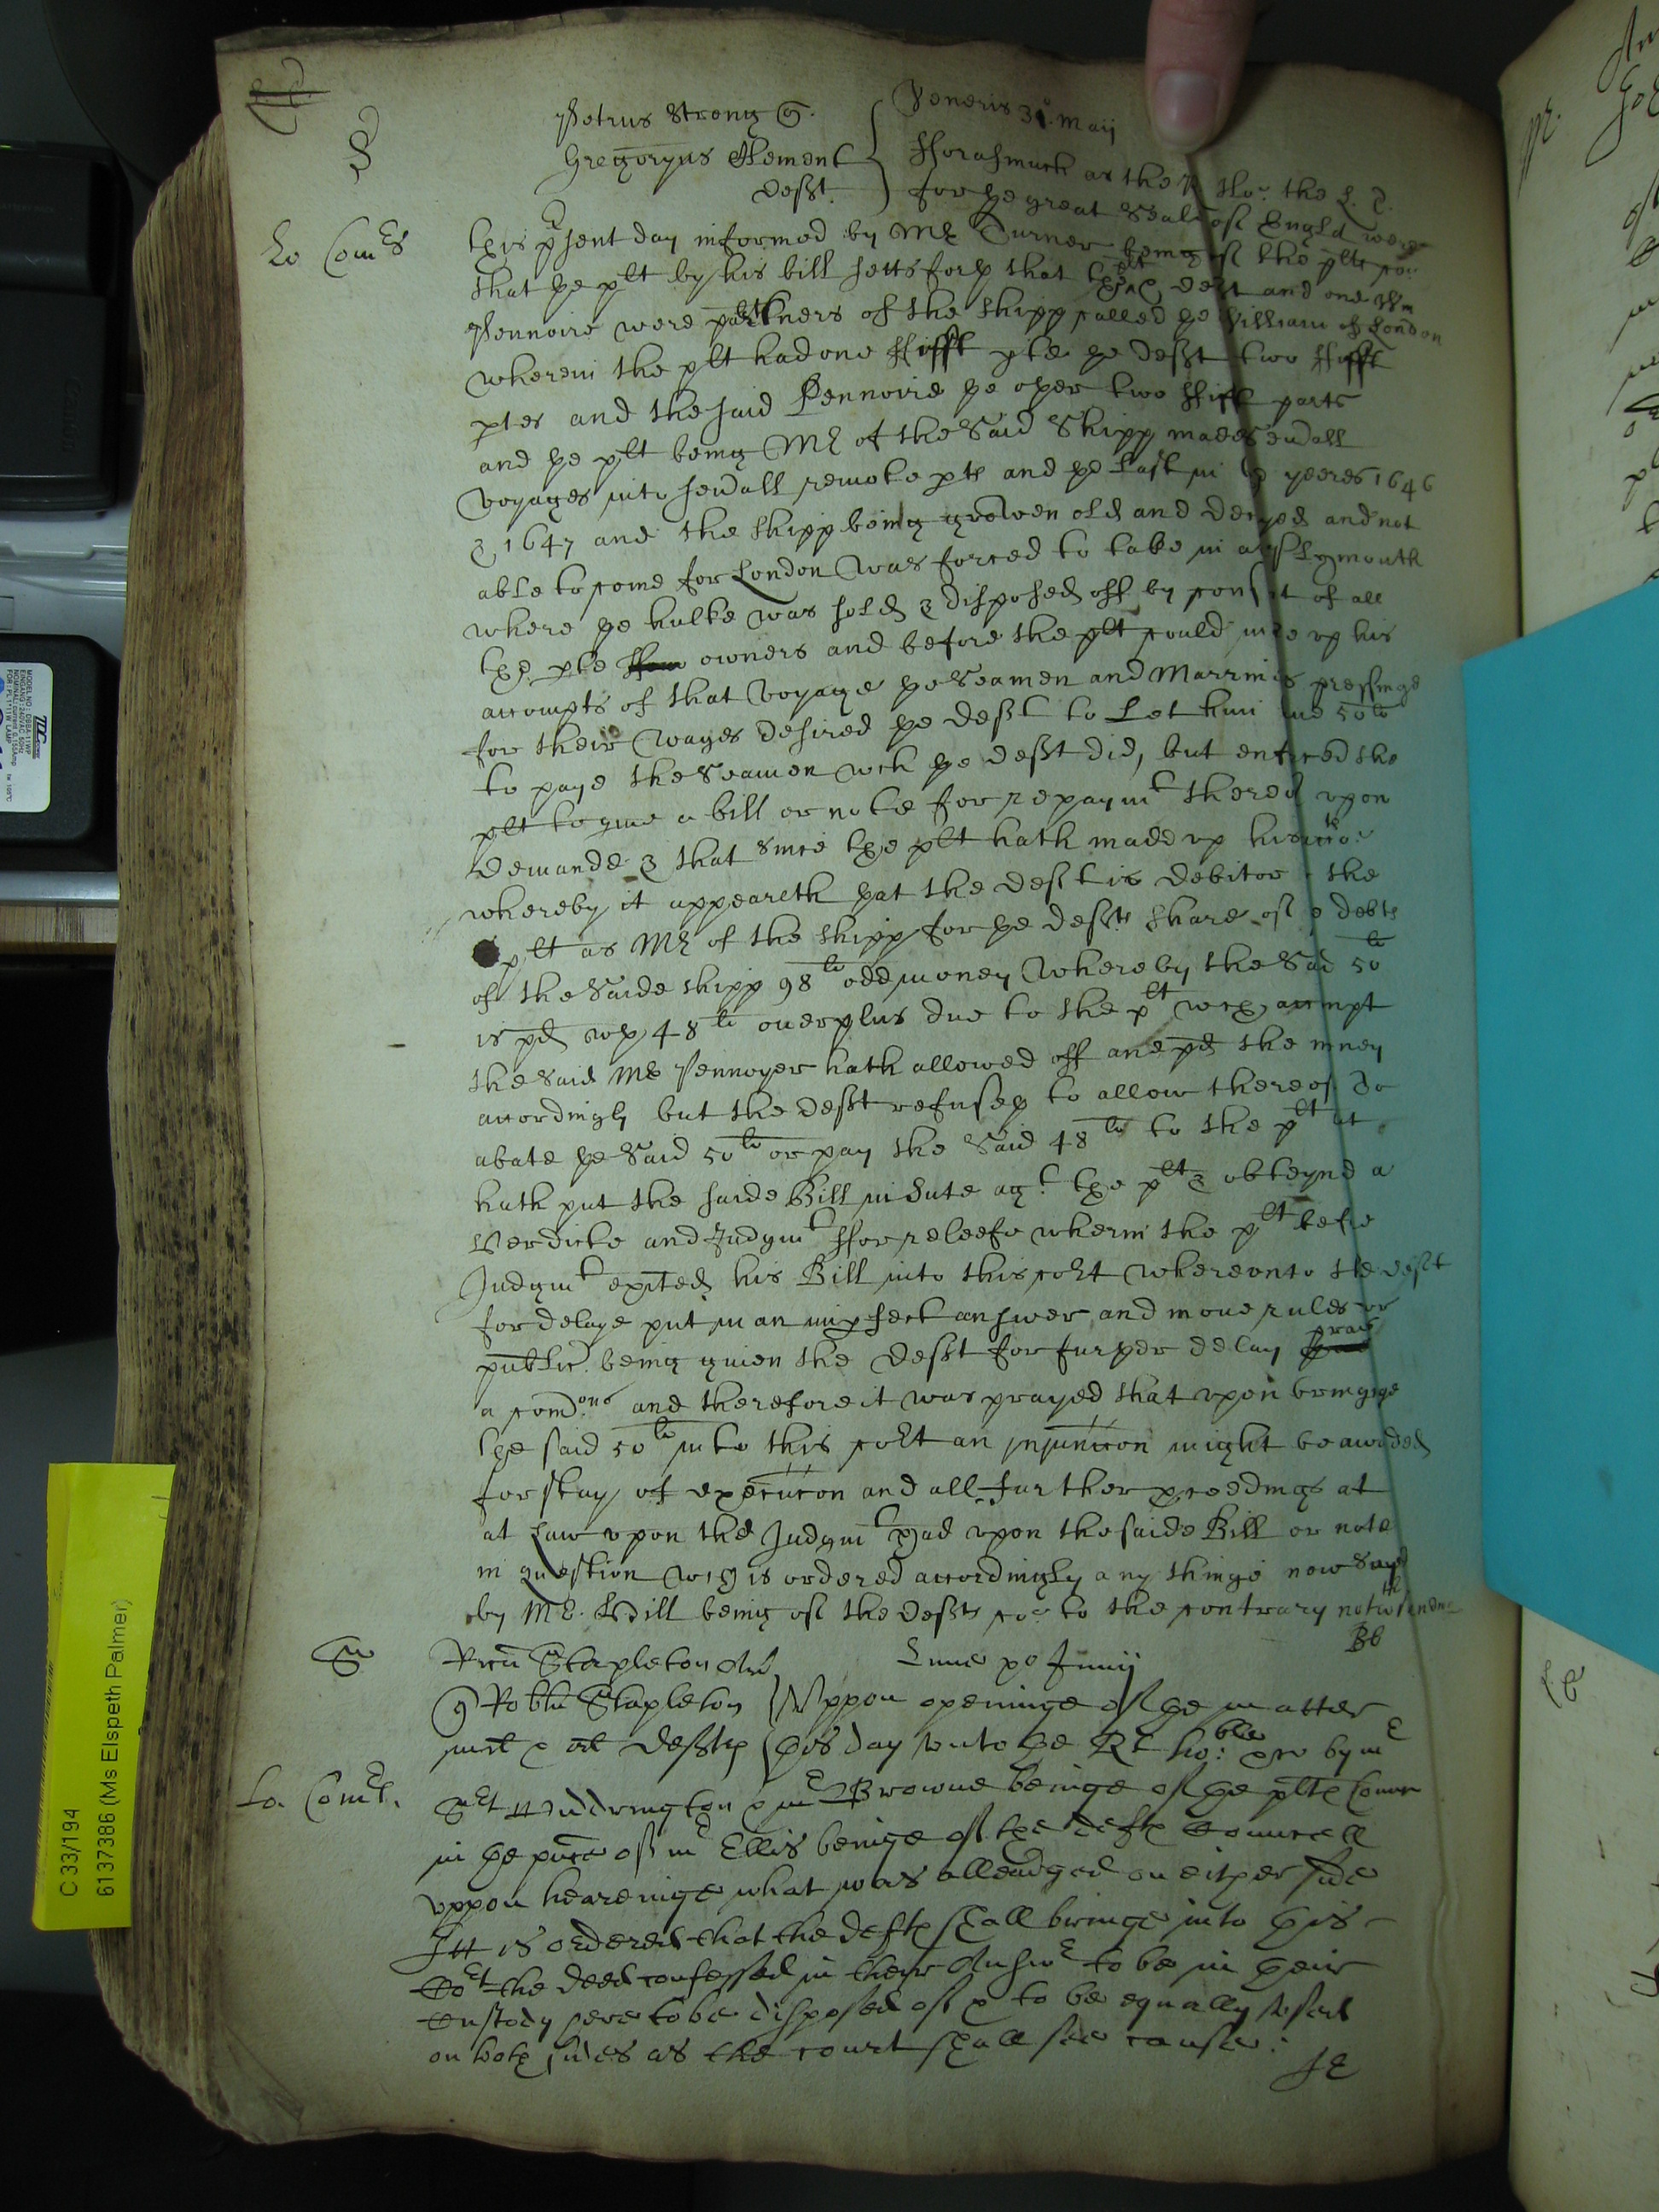 S
Petrus Strong q.
Gregoryus Clement
deft.
Veneris 31 Maij
Lo Com.rs
fforasmuch as the R ho: the L. C.
for ye great Seale of Engld were
this p'sent day informed by Mr Turner being of the plts co:
that ye plt by his bill setts forth that the plt deft and one Wm
Pennoire were partners of the shipp called ye William of London
wherein the plt had one ffifft pte ye deft two ffifft
ptes and the said Pennoire ye other two ffift parts
and ye plt being Mr of the said Shipp made seuall
voyages into seuall remote pts and ye last in ye yeeres 1646
& 1647 and the shipp being growen old and decyed and not
able to come for London was forced to take in att Plymouth
where ye hulke was sold & disposed off by consent of all
the pte owners and before the plt could make vp his
accompts of that voyage ye Seamen and Marrin's pressinge
for their wages desired ye deft to Let him haue 50li
to paye the Seamen wch ye deft did, but enforced the
plt to giue a bill or note for repaymt thereof vpon
demande & that since the plt hath made vp his acco:
whereby it appeareth yat the deft is debitor to the
plt as Mr of the shipp for ye defts share of ye debts
of the saide shipp 98li odd money whereby the said 50li
is pd wth 48li ouerplus due to the plt wch accompt
the said Mr Pennoyer hath allowed off and pd the money
accordingly but the deft refuseth to allow thereof or to
abate ye said 50li or pay the said 48li to the plt but
hath put the saide Bill in sute agt the plt & obteynd a
Verdicte and Judgmt ffor releefe wherin the plt before
Judgmt exited his Bill into this cort whereonto the deft
for delaye put in an imp'fect answer and now rules for
public. being giuen the deft for further delay praies
a comd.ons and therefore it was prayed that vpon bringinge
the said 50li into this cort an Injunccon might be awarded
for stay of execucon and all further p'ceedings at
at Law vpon the Judgmt had vpon the saide Bill or note
in question wch is ordered accordingly any thinge now sayd
by Mr. Hill being of the defts co: to the contrary notwthstandinge
Bb
Ricu Stapleton Ar
q Robtu Stapleton
mil & al defts
Lune xo Junij
Lo. Comrs.
Vppon openinge of ye matter
this day vnto ye Rt ho:ble &c by mr
Srt Widdrington & mr Browne beinge of ye plts Counc
in ye pnce of mr Ellis beinge of the defts Councell
vppon hearinge what was alleadged on either side
Itt is ordered that the defts shall bringe into this
Cort the deed confessed in their Answr to be in their
Custody here to be disposed of & to be equally vsed
on both sides as the court shall see cause.
JE
C 33/194
6137386 (Ms Elspeth Palmer)